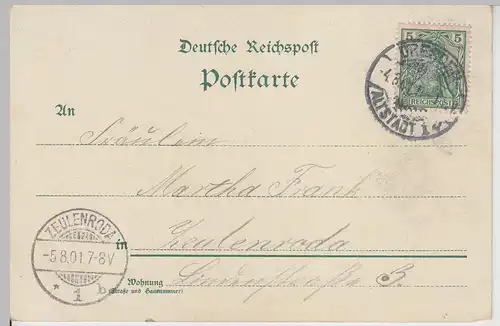 Deutsche Reichspost
Postkarte
5 5
REICHSPOST
DRESDEN
ALTSTADT 1
An
Fräulein
Martha Frank
in
Zeulenroda
ZEULENRODA
-5.8.01.7-8V
* 1 b
Wohnung
(Straße und Hausnummer)